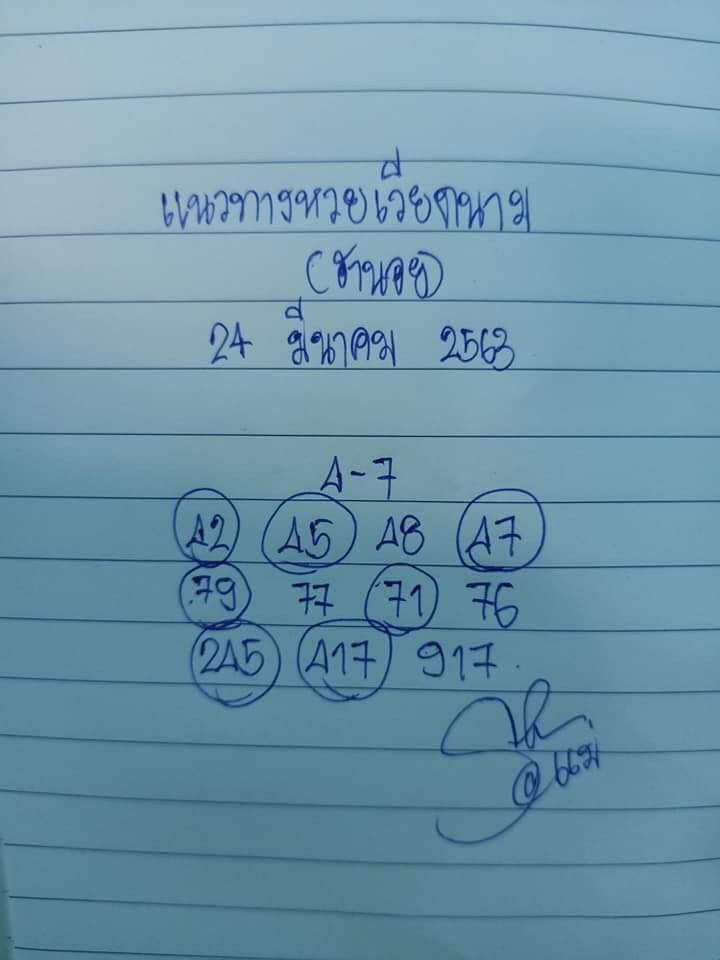 แนวทางหวยเวียดนาม
(ฮานอย)
24 มีนาคม 2563
4-7
42 45 48 47
79 77 71 76
245 417 917
@แม่